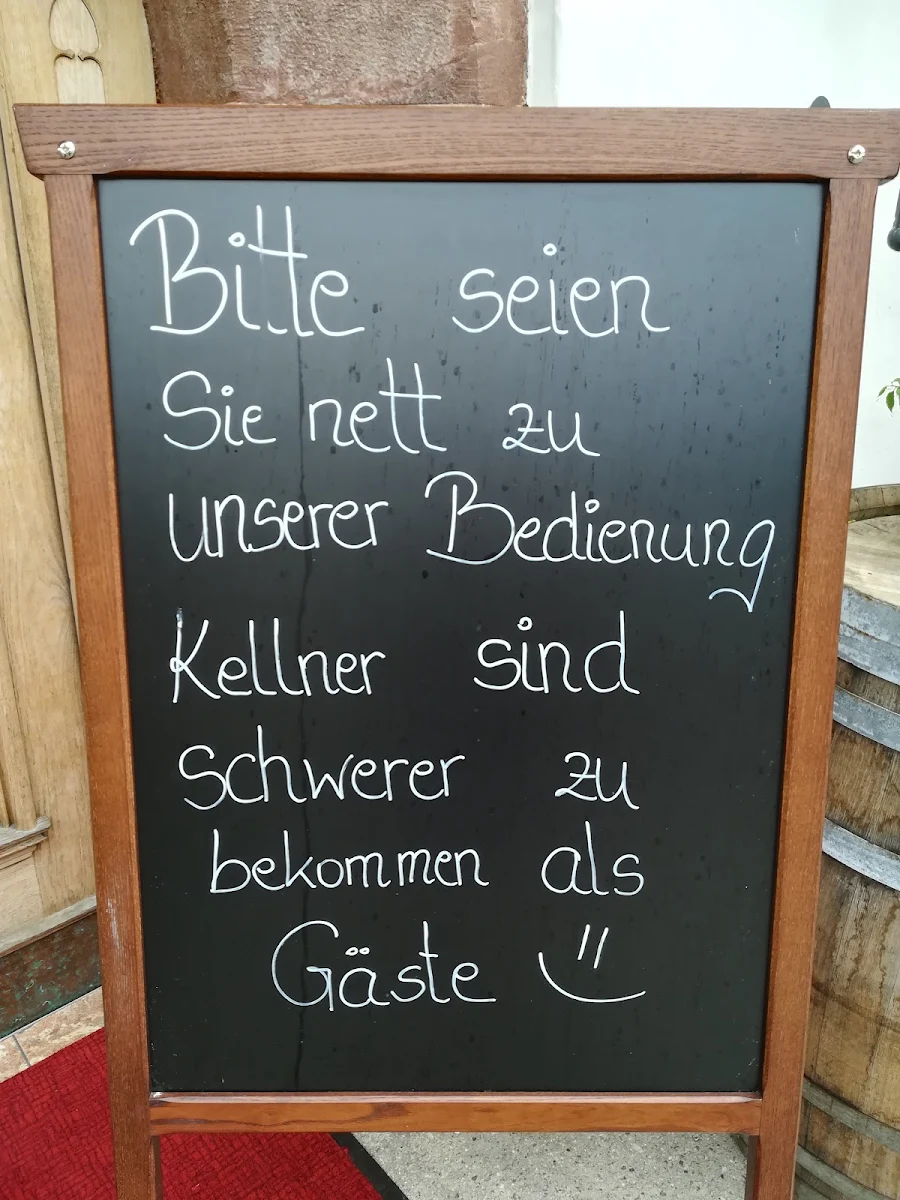 Bitte seien
Sie nett zu
unserer Bedienung
Kellner sind
schwerer zu
bekommen als
Gäste